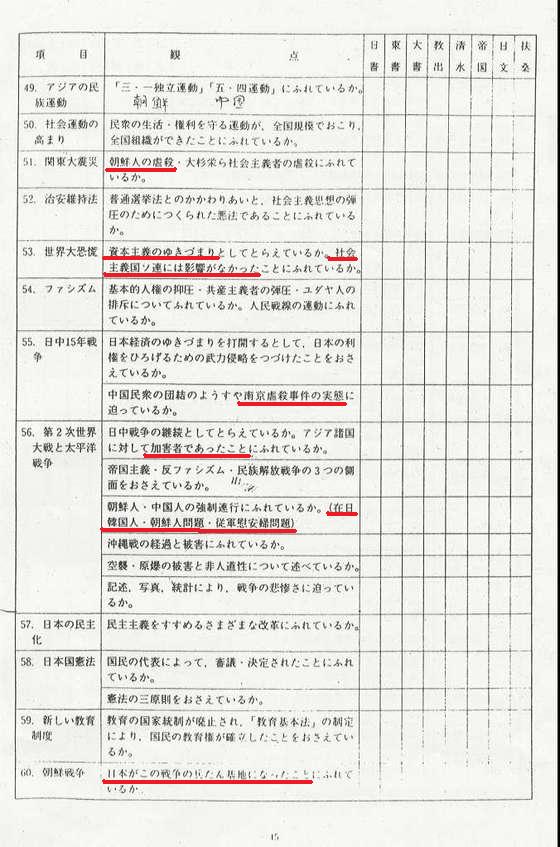 項　目　観　点　日書　東書　大書　教出　清水　帝国　日文　扶桑
49. アジアの民族運動　「三・一独立運動」「五・四運動」にふれているか。
朝鮮　中国
50. 社会運動の高まり　民衆の生活・権利を守る運動が、全国規模でおこり、
全国組織ができたことにふれているか。
51. 関東大震災　朝鮮人の虐殺・大杉栄ら社会主義者の虐殺にふれて
いるか。
52. 治安維持法　普通選挙法とのかかわりあいと、社会主義思想の弾
圧のためにつくられた悪法であることにふれている
か。
53. 世界大恐慌　資本主義のゆきづまりとしてとらえているか。社会
主義国ソ連には影響がなかったことにふれているか。
54. ファシズム　基本的人権の抑圧・共産主義者の弾圧・ユダヤ人の
排斥についてふれているか。人民戦線の運動にふれ
ているか。
55. 日中15年戦争　日本経済のゆきづまりを打開するとして、日本の利
権をひろげるための武力侵略をつづけたことをおさ
えているか。
中国民衆の団結のようすや南京虐殺事件の実態に
迫っているか。
56. 第2次世界大戦と太平洋戦争　日中戦争の継続としてとらえているか。アジア諸国
に対して加害者であったことにふれているか。
帝国主義・反ファシズム・民族解放戦争の3つの側
面をおさえているか。
朝鮮人・中国人の強制連行にふれているか。(在日
韓国人・朝鮮人問題・従軍慰安婦問題)
沖縄戦の経過と被害にふれているか。
空襲・原爆の被害と非人道性について述べているか。
記述、写真、統計により、戦争の悲惨さに迫ってい
るか。
57. 日本の民主化　民主主義をすすめるさまざまな改革にふれているか。
58. 日本国憲法　国民の代表によって、審議・決定されたことにふれ
ているか。
憲法の三原則をおさえているか。
59. 新しい教育制度　教育の国家統制が廃止され、「教育基本法」の制定
により、国民の教育権が確立したことをおさえてい
るか。
60. 朝鮮戦争　日本がこの戦争の兵たん基地になったことにふれて
いるか.
15